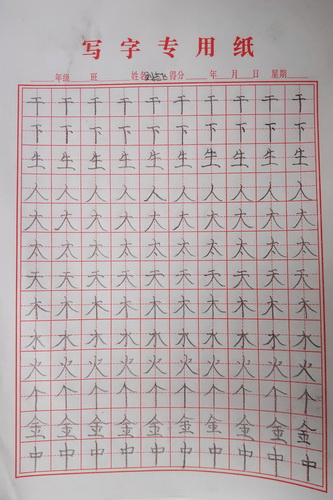 写字专用纸
年级 班 姓名 得分 年 月 日 星期
干 干 干 干 干 干 干 干 干 干
下 下 下 下 下 下 下 下 下 下
生 生 生 生 生 生 生 生 生 生
人 人 人 人 人 人 人 人 人 人
大 大 大 大 大 大 大 大 大 大
太 太 太 太 太 太 太 太 太 太
天 天 天 天 天 天 天 天 天 天
木 木 木 木 木 木 木 木 木 木
水 水 水 水 水 水 水 水 水 水
火 火 火 火 火 火 火 火 火 火
个 个 个 个 个 个 个 个 个 个
金 金 金 金 金 金 金 金 金 金
中 中 中 中 中 中 中 中 中 中